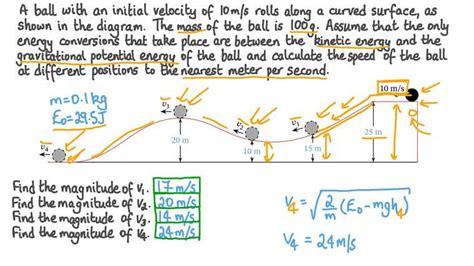 A ball with an initial velocity of 10 m/s rolls along a curved surface, as
shown in the diagram. The mass of the ball is 100g. Assume that the only
energy conversions that take place are between the kinetic energy and the
gravitational potential energy of the ball and calculate the speed of the ball
at different positions to the nearest meter per second.
m=0.1kg
E₀=29.5J
10 m/s
v₃
v₂
v₁
v₄
20 m
10 m
15 m
25 m
Find the magnitude of v₁. 17 m/s
Find the magnitude of v₂. 20 m/s
Find the magnitude of v₃. 14 m/s
Find the magnitude of v₄. 24 m/s
v₄ = √(2/m (E₀ - mgh₄))
v₄ = 24m/s